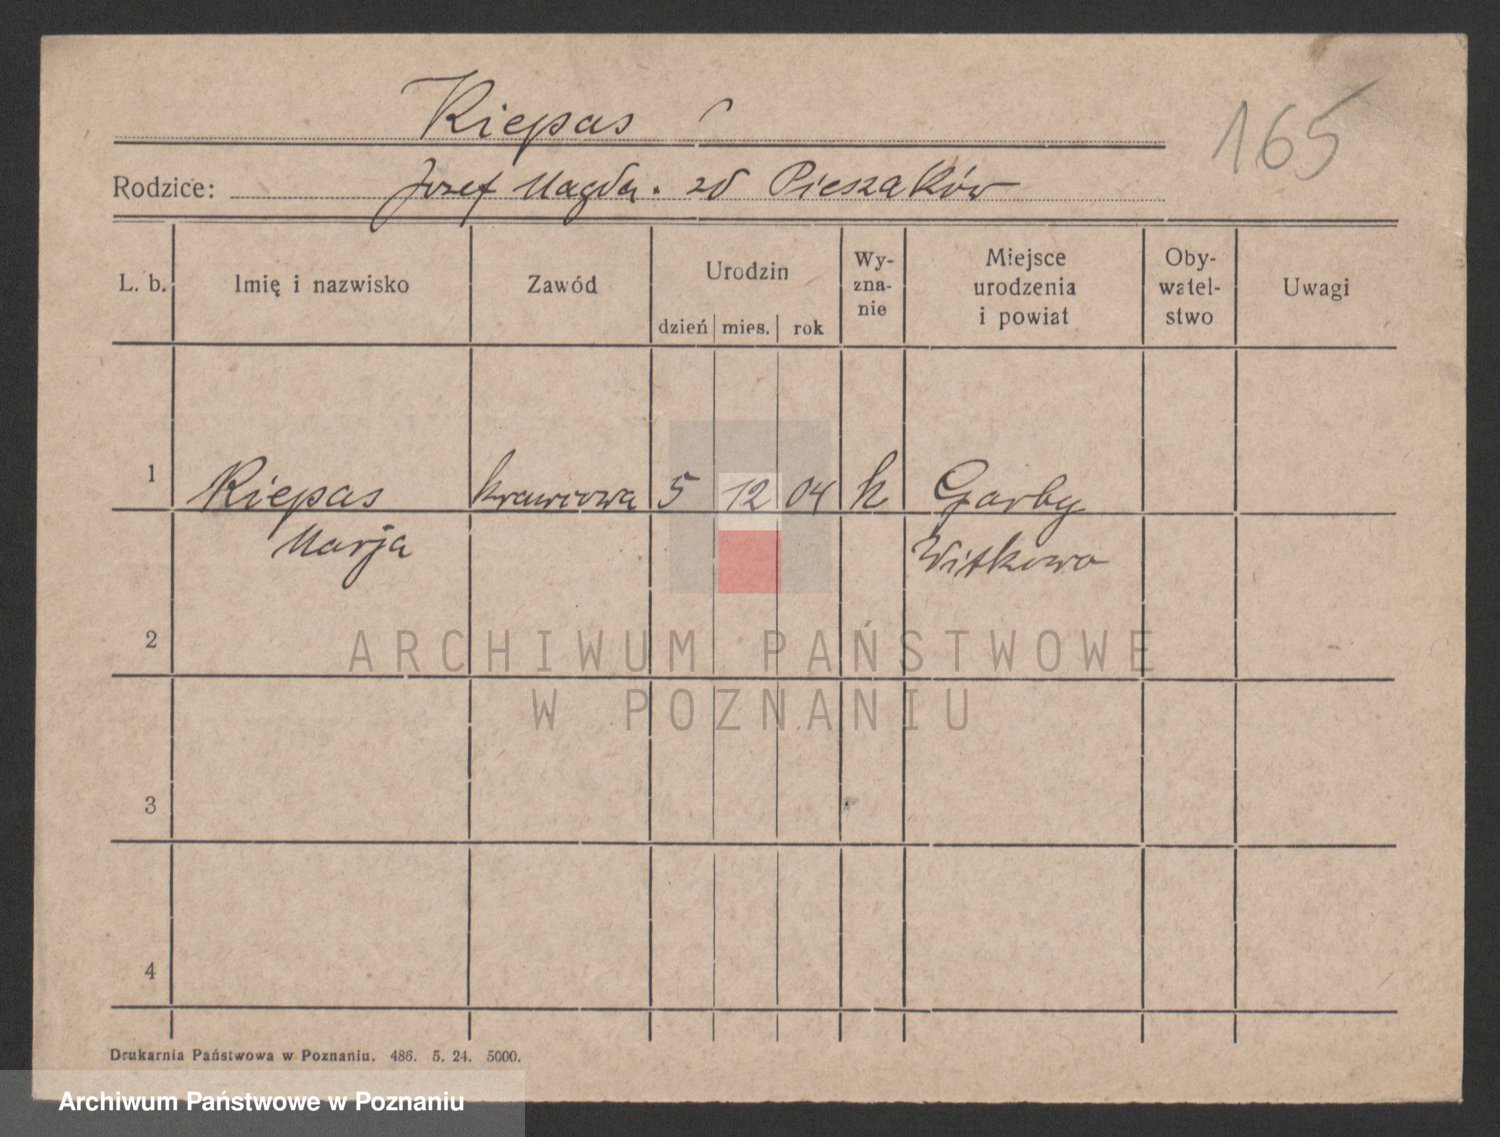 Kiepas
165
Rodzice: Jozef Magda. zd Pieszaków
L. b. Imię i nazwisko Zawód Urodzin dzień mies. rok Wy-zna-nie Miejsce urodzenia i powiat Oby-watel-stwo Uwagi
1 Kiepas krawcowa 5 12 04 k Garby
Marja Witkowo
2
ARCHIWUM PAŃSTWOWE
W POZNANIU
3
4
Drukarnia Państwowa w Poznaniu. 486. 5. 24. 5000.
Archiwum Państwowe w Poznaniu